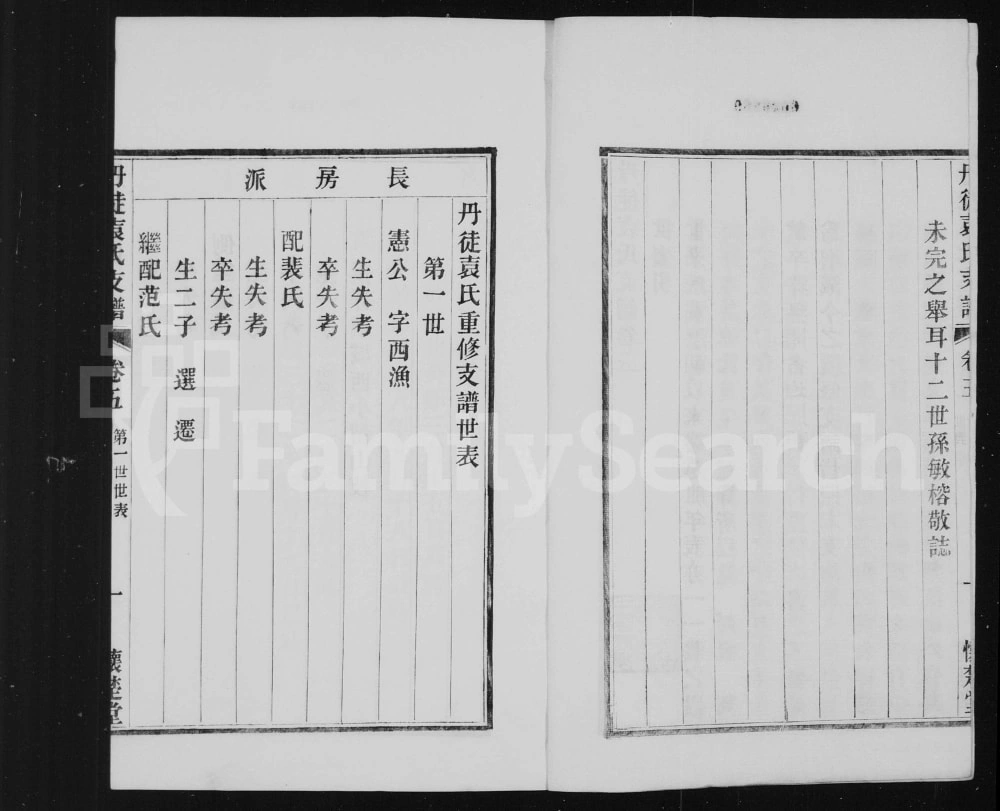 未完之舉耳十二世孫敏榕敬誌
長房派
丹徒袁氏重修支譜世表
第一世
憲公 字西漁
生失考
卒失考
配裴氏
生失考
卒失考
生二子 選 遷
繼配范氏
丹徒袁氏支譜 卷五 第一世世表 一 懷楚堂
FamilySearch